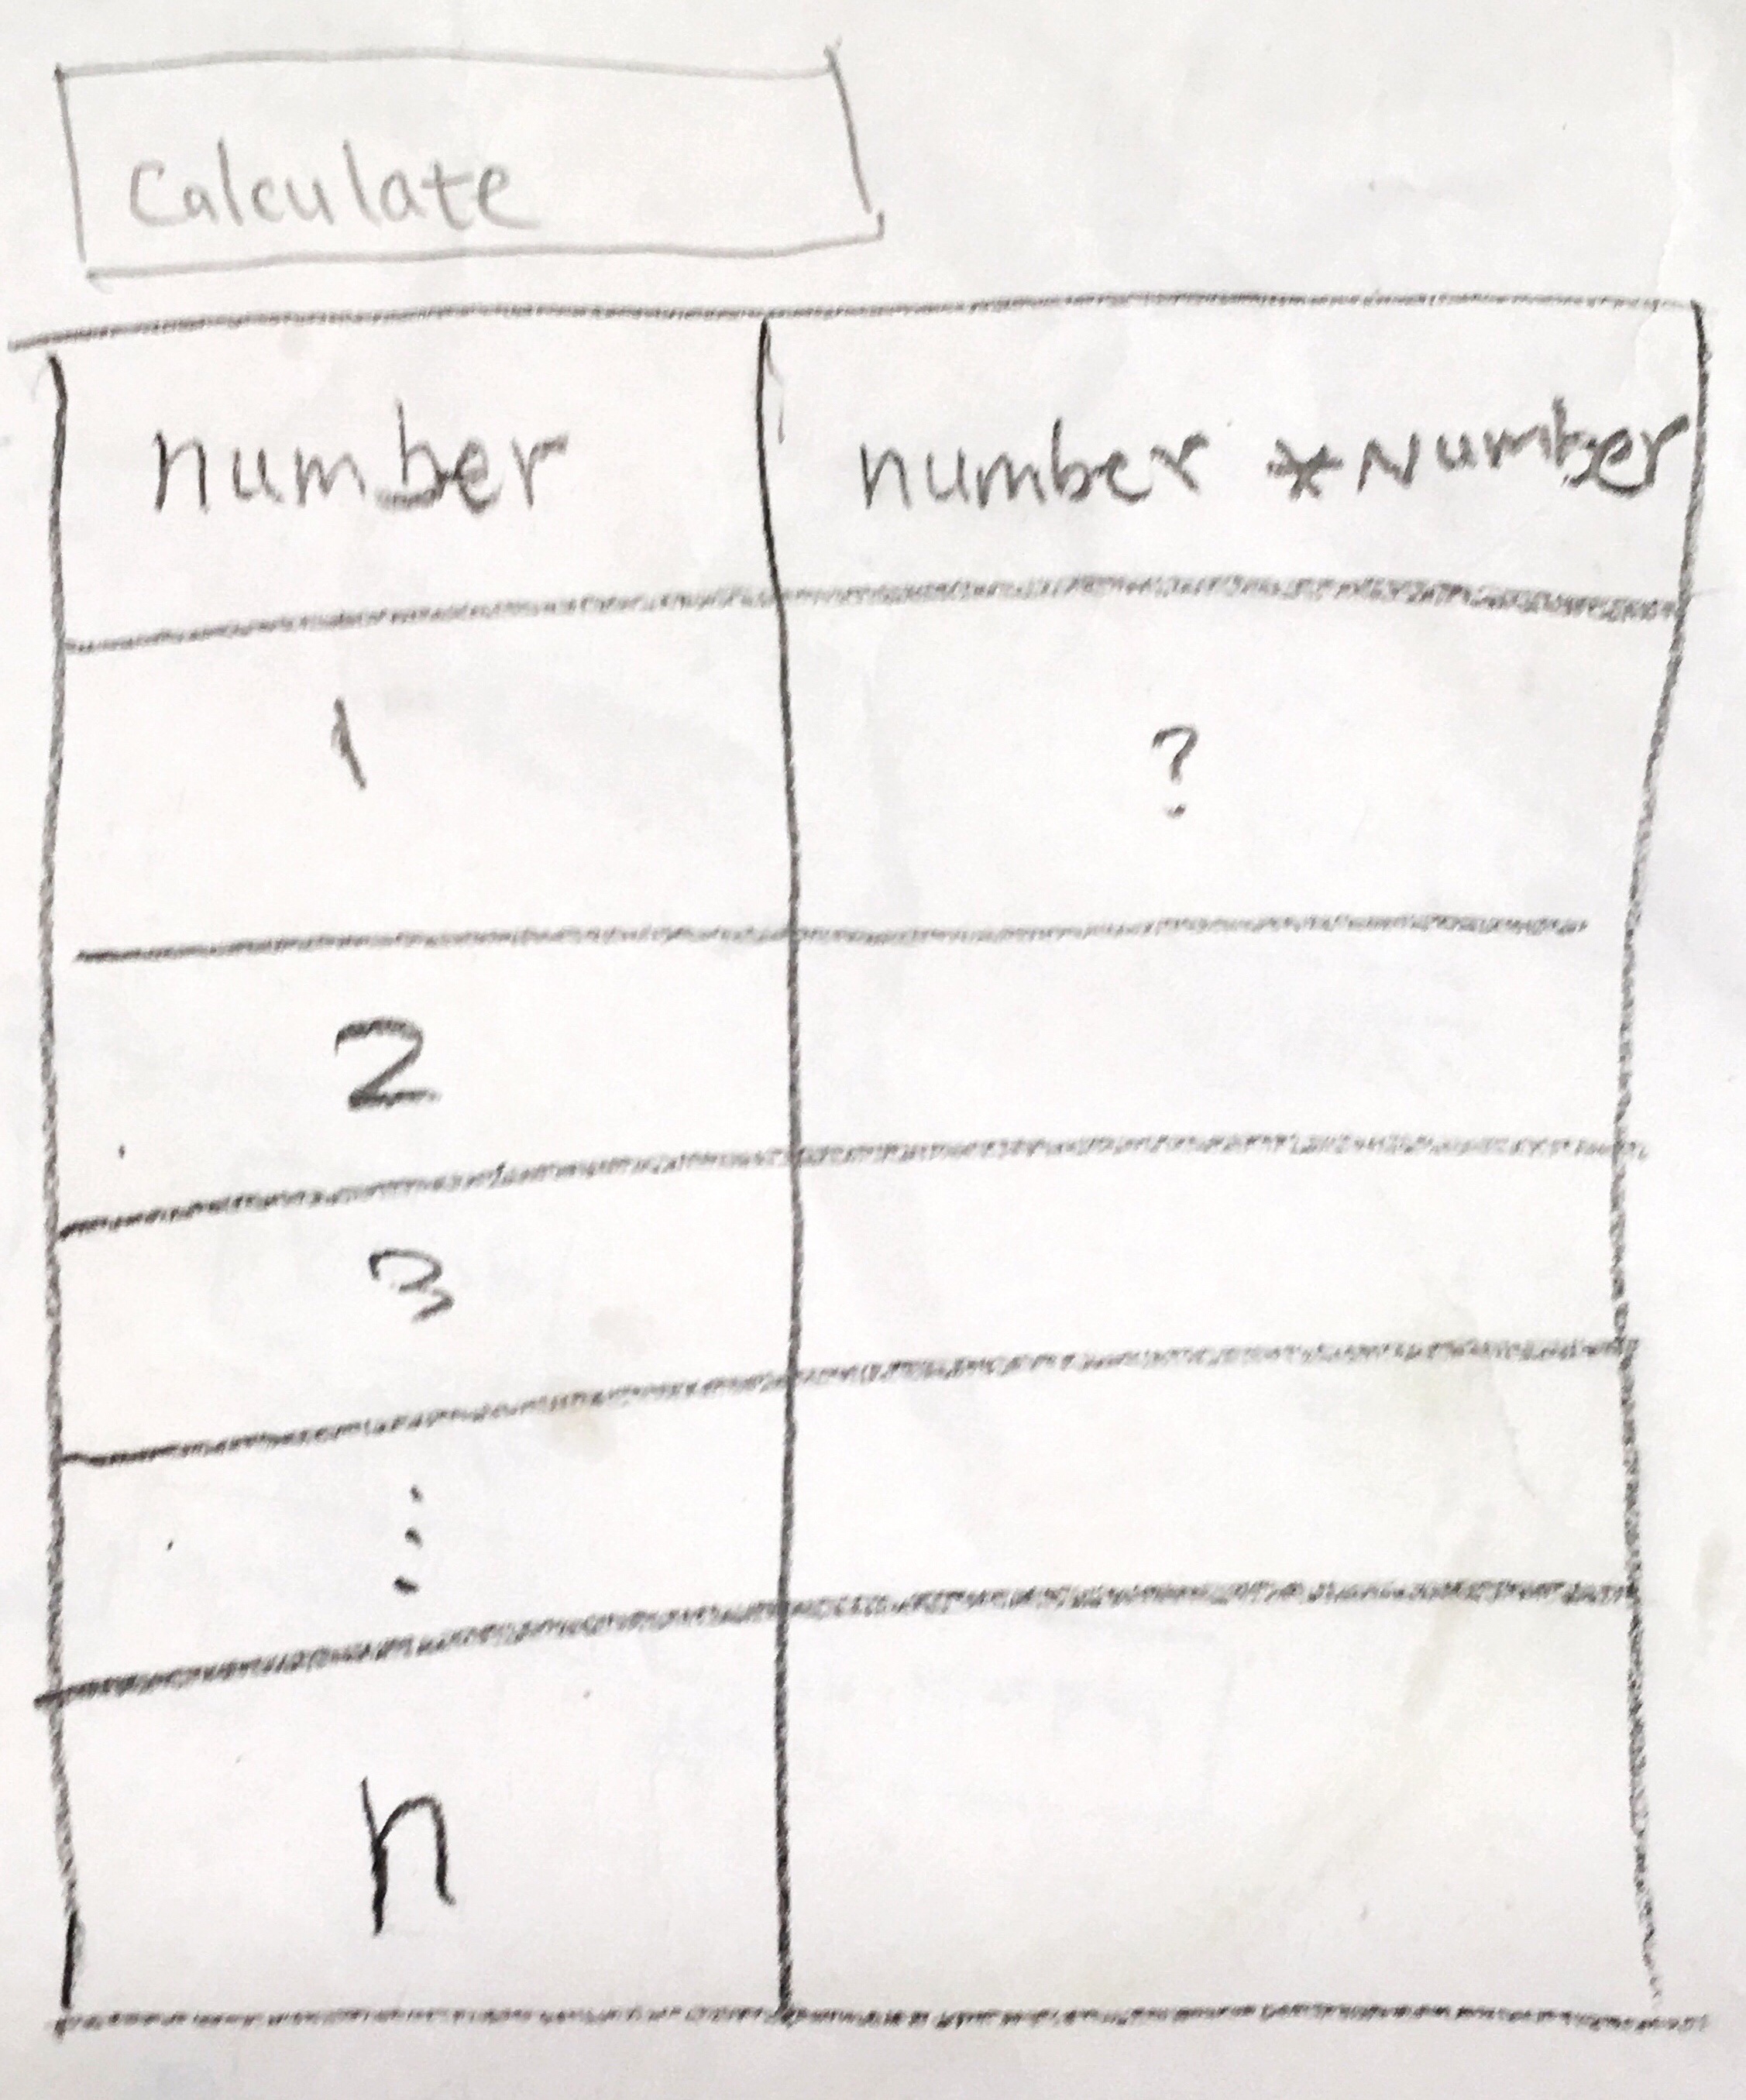 Calculate
number number *Number
1 ?
2
3
⋮
n